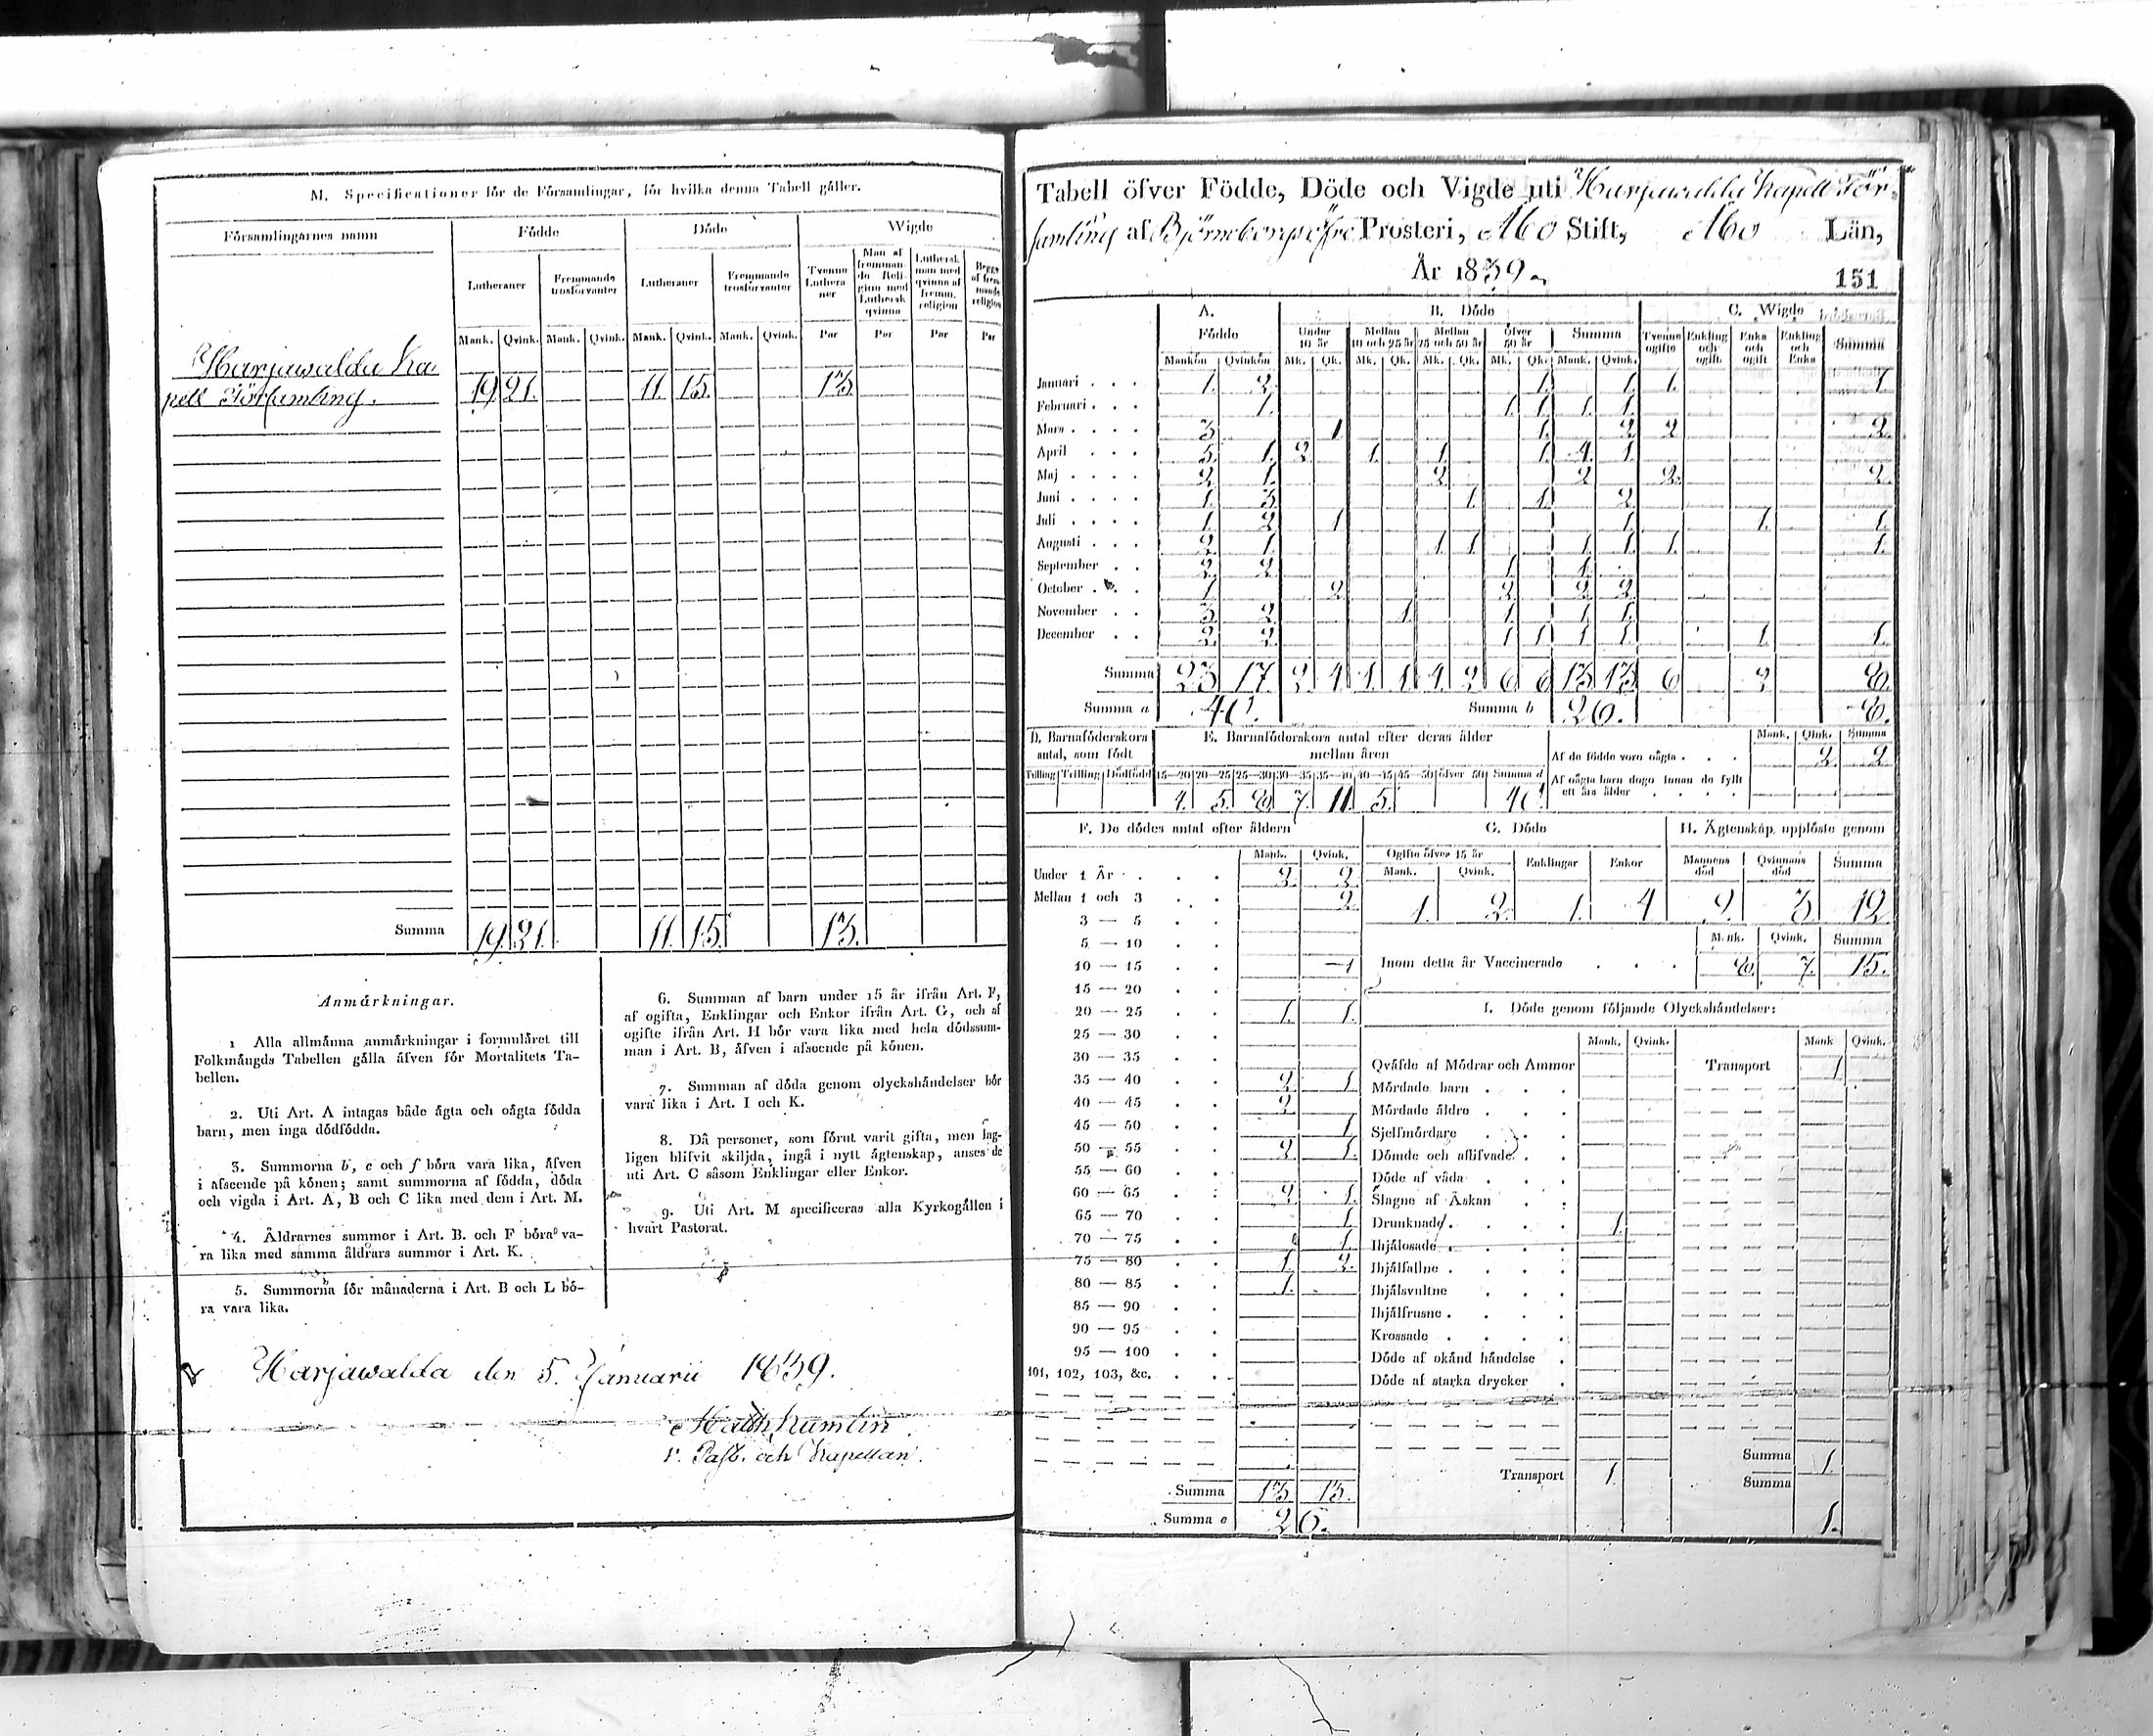 M. Specificationer för de Församlingar, för hvilka denna Tabell gäller.
Församlingarnes namn
Födde
Döde
Wigde
Lutheraner
Fremmande trosförvanter
Lutheraner
Fremmande trosförvanter
Tvenne Lutheraner
Man af fremmande Religion med Luthersk qvinna
Luthersk man med qvinna af fremm. religion
Begge af fremmande religion
Mank. Qvink. Mank. Qvink. Mank. Qvink. Mank. Qvink. Par Par Par Par
Harjawalda Ka
pell Församling. 19. 21. 11. 15. 13.
Summa 19. 21. 11. 15. 13.
Anmärkningar.
1 Alla allmänna anmärkningar i formuläret till
Folkmängds Tabellen gälla äfven för Mortalitets Ta-
bellen.
2. Uti Art. A intagas både ägta och oägta födda
barn, men inga dödfödda.
3. Summorna b, e och f böra vara lika, äfven
i afseende på könen; samt summorna af födda, döda
och vigda i Art. A, B och C lika med dem i Art. M.
4. Äldrarnes summor i Art. B. och F böra va-
ra lika med samma äldrars summor i Art. K.
5. Summorna för månaderna i Art. B och L bö-
ra vara lika.
6. Summan af barn under 15 år ifrån Art. F,
af ogifta, Enklingar och Enkor ifrån Art. G, och af
ogifte ifrån Art. H bör vara lika med hela dödssum-
man i Art. B, äfven i afseende på könen.
7. Summan af döda genom olyckshändelser bör
vara lika i Art. I och K.
8. Då personer, som förut varit gifta, men lag-
ligen blifvit skiljda, ingå i nytt ägtenskap, anses de
uti Art. C såsom Enklingar eller Enkor.
9. Uti Art. M specificeras alla Kyrkogällen i
hvart Pastorat.
Harjawalda den 5. Januarii 1839.
Math Kumlin
V. Past. och Kapellan.
Tabell öfver Födde, Döde och Vigde uti Harjawalda Kapell För-
samling af Björneborgs öfre Prosteri, Åbo Stift, Åbo Län,
År 1839
151
A.
Födde
B. Döde
C. Wigde
Under 10 år
Mellan 10 och 25 år
Mellan 25 och 50 år
Öfver 50 år
Summa
Tvenne ogifte
Enkling och ogift
Enka och ogift
Enkling och Enka
Summa
Mankön Qvinkön Mk. Qk. Mk. Qk. Mk. Qk. Mk. Qk. Mank. Qvink.
Januari 1. 2. 1. 1. 1. 1
Februari 1. 1. 1. 1. 1.
Mars 3. 1 1. 2 2 2.
April 3. 1. 2. 1. 1. 1. 4. 1.
Maj 2. 1. 2. 2 2. 2.
Juni 1. 3. 1. 1. 2
Juli 1. 2 1 1. 1. 1.
Augusti 2. 1. 1. 1. 1. 1. 1. 1.
September 2. 2. 1. 1.
October 1. 2. 2. 2. 2.
November 3. 2. 1. 1. 1. 1.
December 2. 2. 1. 1. 1. 1. 1. 1.
Summa 23 17. 2. 4. 1. 1. 4. 2. 6 6 13 13. 6 2. 8.
Summa a 40.
Summa b 26.
8.
D. Barnaföderskors
antal, som födt
E. Barnaföderskors antal efter deras ålder
mellan åren
Tvilling Trilling Dödfödd 15—20 20—25 25—30 30—35 35—40 40—45 45—50 öfver 50 Summa d
4. 5. 8. 7. 11. 5. 40.
Mank. Qink. Summa
Af de födde voro oägta 2. 2
Af oägta barn dogo innan de fyllt
ett års ålder
F. De dödes antal efter åldern
Mank. Qvink.
Under 1 År 2. 2.
Mellan 1 och 3 2.
3 — 5
5 — 10
10 — 15 1
15 — 20
20 — 25 1. 1.
25 — 30
30 — 35
35 — 40 2. 1.
40 — 45 2.
45 — 50 1.
50 — 55 2. 1.
55 — 60
60 — 65 2. 1.
65 — 70 1.
70 — 75 1.
75 — 80 1. 2.
80 — 85 1.
85 — 90
90 — 95
95 — 100
101, 102, 103, &c.
Summa 13 13.
Summa e 26.
G. Döde
Ogifte öfver 15 år
Enklingar
Enkor
Mank. Qvink.
1. 2. 1. 4
H. Ägtenskap, upplöste genom
Mannens död
Qvinnans död
Summa
9. 3. 12
M.nk. Qvink. Summa
Inom detta år Vaccinerade 8. 7. 15.
I. Döde genom följande Olyckshändelser:
Mank. Qvink. Mank Qvink.
Qväfde af Mödrar och Ammor
Mördade barn
Mördade äldre
Sjelfmördare
Dömde och aflifvade
Döde af våda
Slagne af Åskan
Drunknade 1.
Ihjälosade
Ihjälfallne
Ihjälsvultne
Ihjälfrusne
Krossade
Döde af okänd händelse
Döde af starka drycker
Transport 1.
Transport 1
Summa 1.
Summa 1.